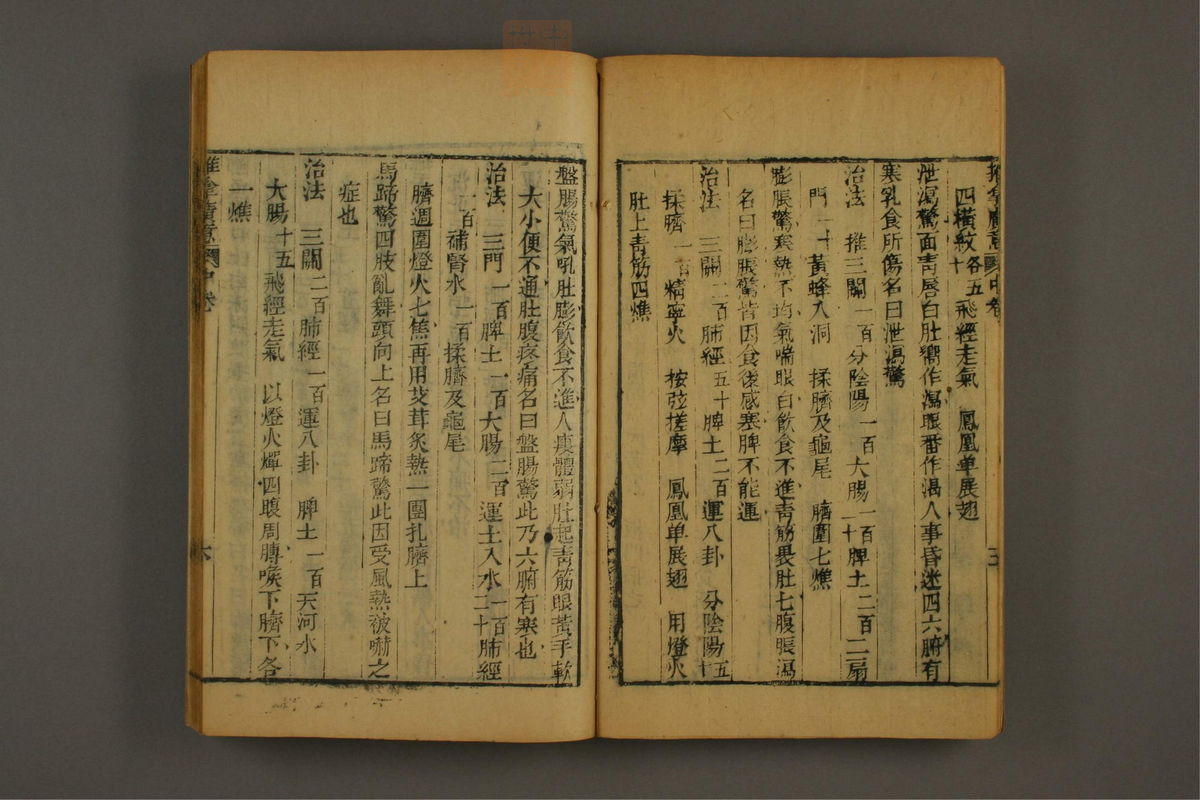 四橫紋各五十飛經走氣　鳳凰单展翅
泄瀉驚面青唇白肚嚮作瀉眼番作渴人事昏迷四六腑有
寒乳食所傷名曰泄瀉驚
治法　推三關一百分陰陽一百大腸一百二十脾土二百二扇
門　黃蜂入洞　揉臍及龜尾　臍圍七燋
膨脹驚寒熱不均氣喘眼白飲食不進青筋畏肚七腹脹瀉
名曰膨脹驚皆因食後感寒脾不能運
治法　三關二百肺經五十脾土二百運八卦　分陰陽五十
揉臍一百精寧火　按弦搓摩　鳳凰单展翅　用燈火
肚上青筋四燋
盤腸驚氣吼肚膨飲食不進人瘦體弱肚起青筋眼黃手軟
大小便不通肚腹疼痛名曰盤腸驚此乃六腑有寒也
治法　三門一百脾土一百大腸二百運土入水一百二十肺經
一百補腎水一百揉臍及龜尾
臍週圍燈火七焦再用艾茸炙熱一團扎臍上
馬蹄驚四肢亂舞頭向上名曰馬蹄驚此因受風熱被嚇之
症也
治法　三關二百肺經一百運八卦　脾土一百天河水
大腸十五飛經走氣　以燈火燀四腹周膊喉下臍下各
一燋
推拿廣意　中卷
六